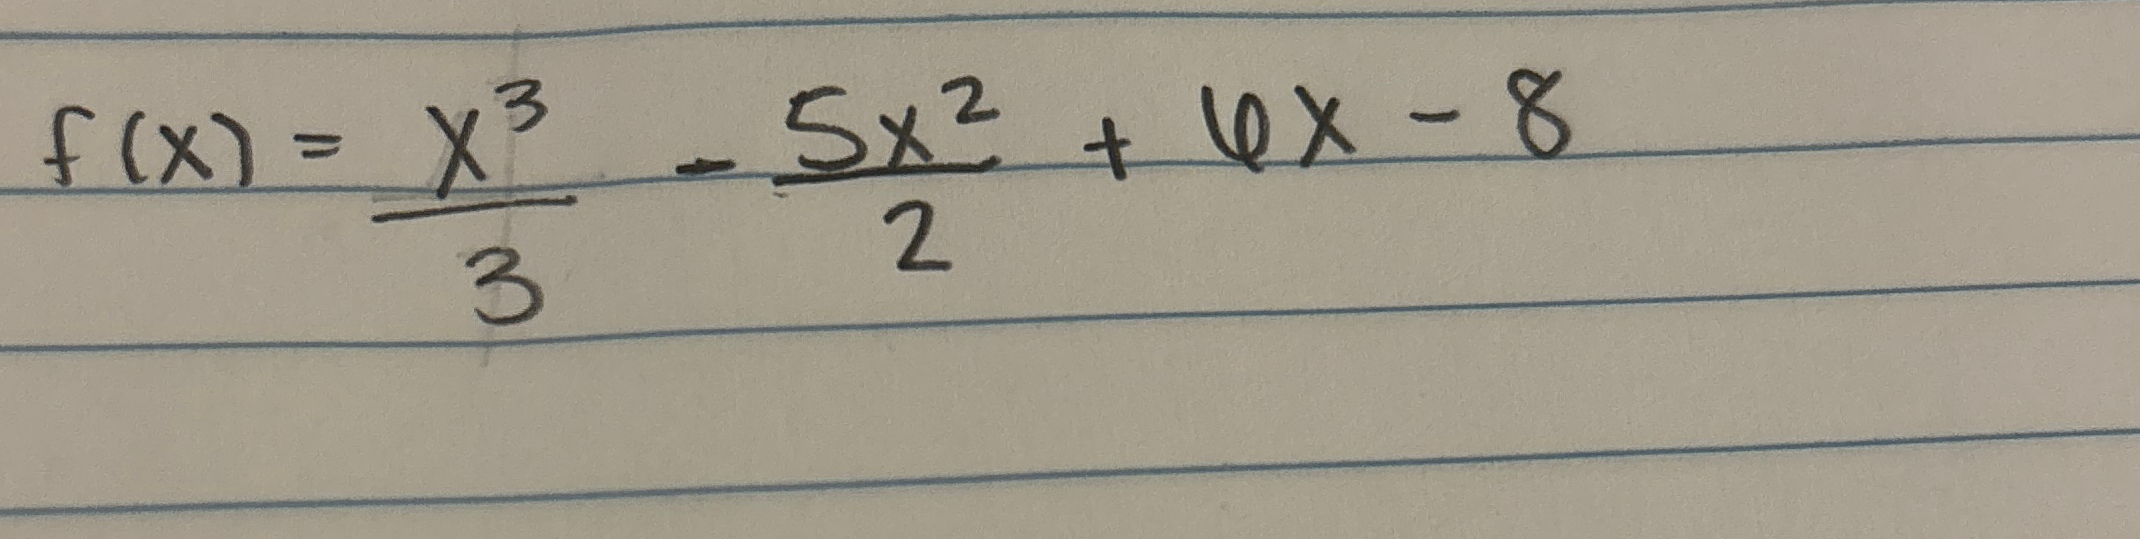 f(x) = x³/3 - 5x²/2 + 6x - 8